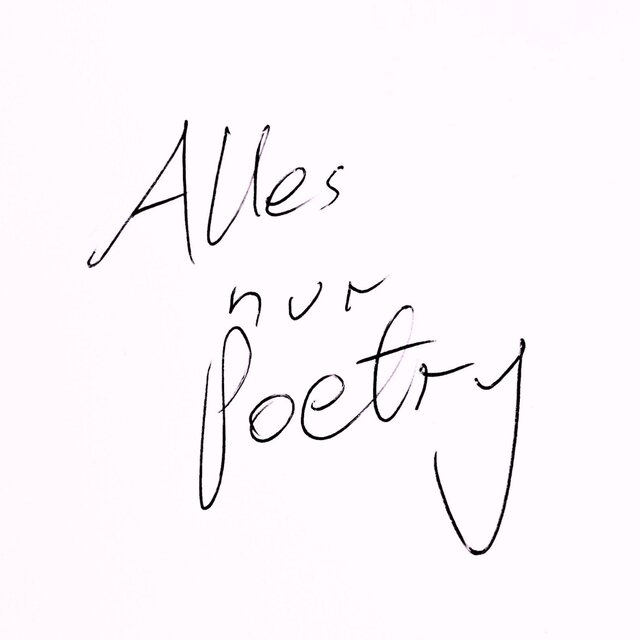 Alles
nur
Poetry